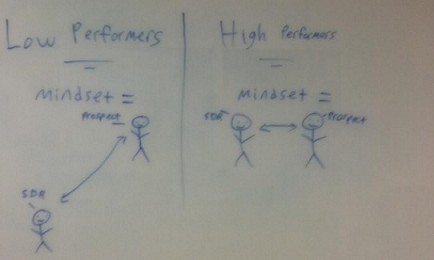 Low Performers
Mindset =
Prospect
SDR
High Performers
Mindset =
SDR
Prospect